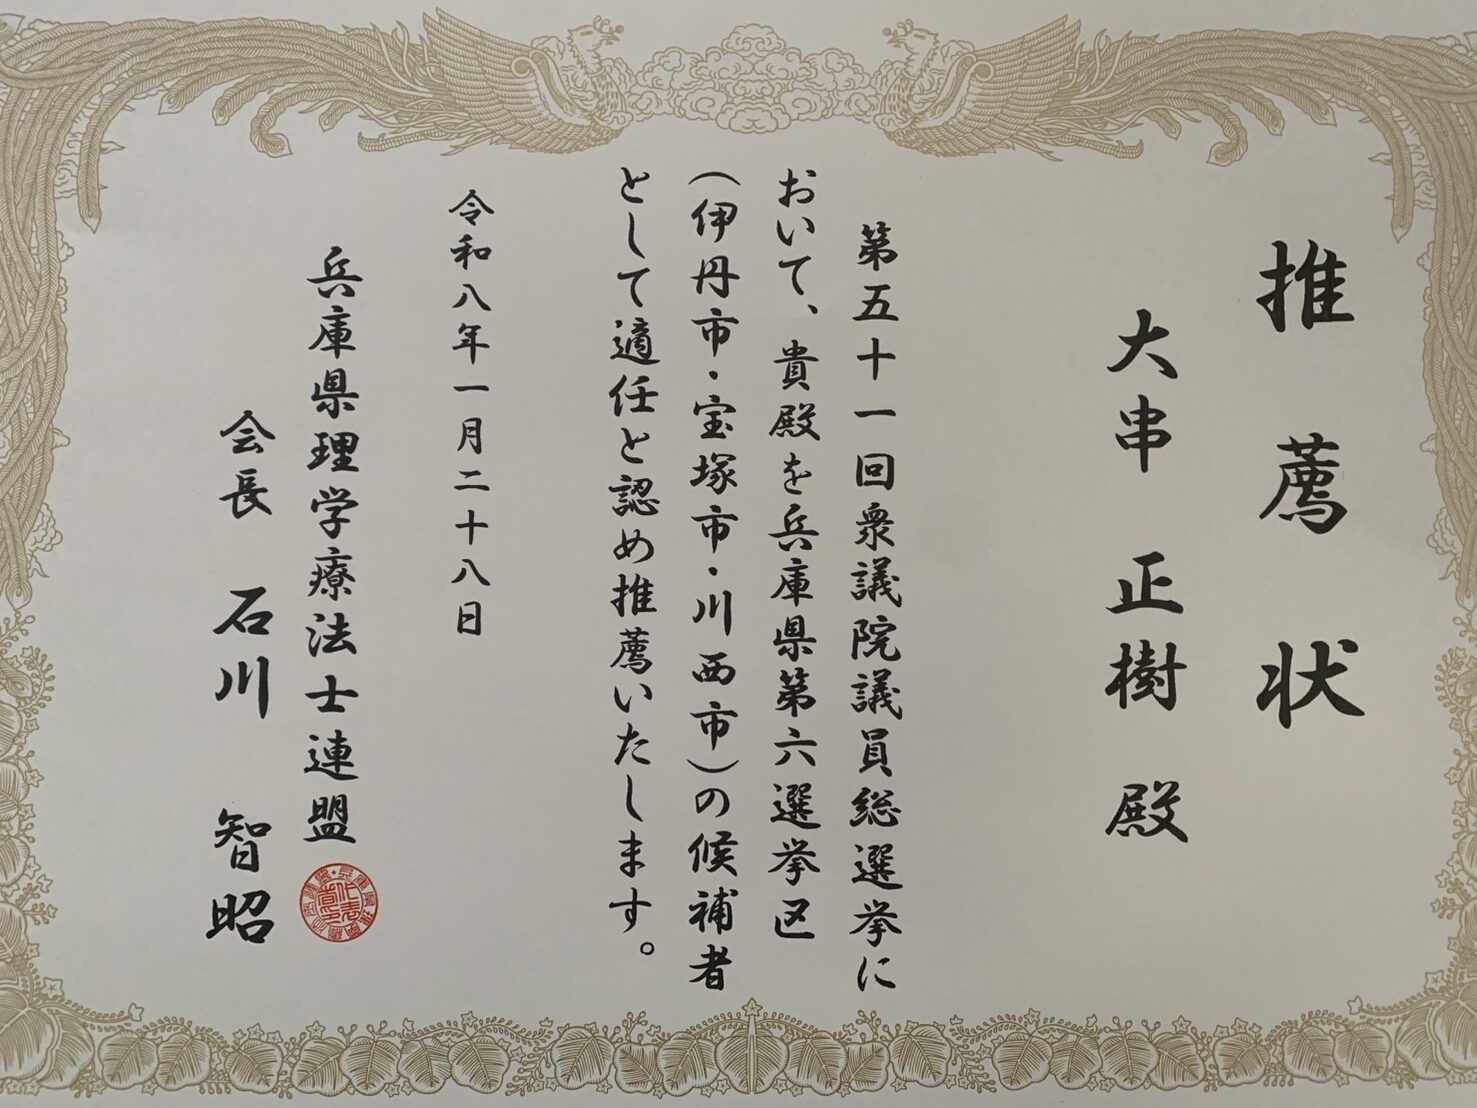 推薦状
大串 正樹 殿
第五十一回衆議院議員総選挙に
おいて、貴殿を兵庫県第六選挙区
（伊丹市・宝塚市・川西市）の候補者
として適任と認め推薦いたします。
令和八年一月二十八日
兵庫県理学療法士連盟
会長 石川 智昭